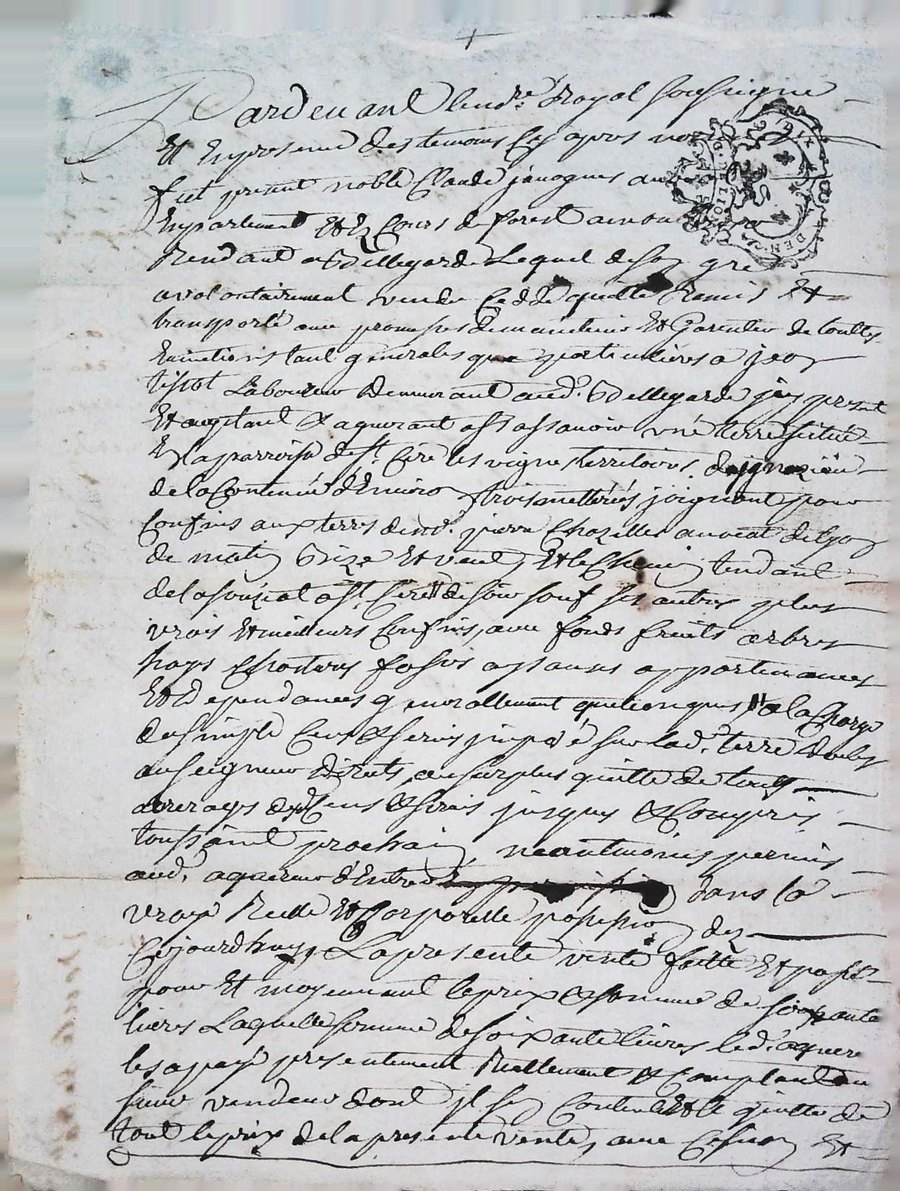 Pardevant le no.re Royal soussigne
Et En presence des temoins Cy apres nom
fut present noble Claude janoques au
En parlement Et Es Cours de forest
Rendant a Bellegarde Lequel de son gre
a volontairement vendu Cedde quitte Remis Et
transporté avec promesse de maintenir Et Garentir de touttes
Evictions tant generales que particulieres a jean
tissot Laboureur demeurant aud. Bellegarde jcy present
Et acceptant & aquerant assavoir une terre scitué
En la parroisse de st. Cire les vigne territoire
de la Contenue d'Environ trois metterées joignant pour
Confins aux terres de pierre Chazelles avocat de Lyon
de matin Bize Et vent Et le Chemin tendant
de a st. Cire de soir sauf ses autres plus
vrais Et meilleurs Confins avec fonds fruits arbres
hayes fosses aysances appartenances
Et Dependances generallement quelconques a la Charge
de simple Cens & servis jmposé sur lad. terre
au seigneur directs au surplus quitte de touts
arrerages de Cens & servis jusques & Compris
toussaint prochain neantmoins permis
aud. aquereur d'Entrer dans la
vraye Reelle Et Corporelle possession dez
Cejourdhuy La presente vente faitte Et passée
pour Et moyennant le prix & somme de soixante
livres Laquelle somme de soixante livres led. aquere
les a payé presentement Reellement & Comptant au
sieur vendeur dont jl se Contente Et le quitte de
tout le prix de la presente vente, avec Cession Et